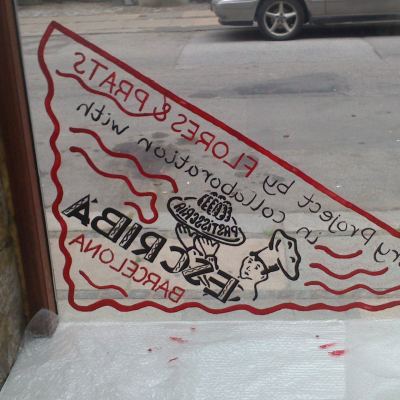 ry project by FLORES & PRATS
in collaboration with
PASTISSERIA
ESCRIBÀ
BARCELONA